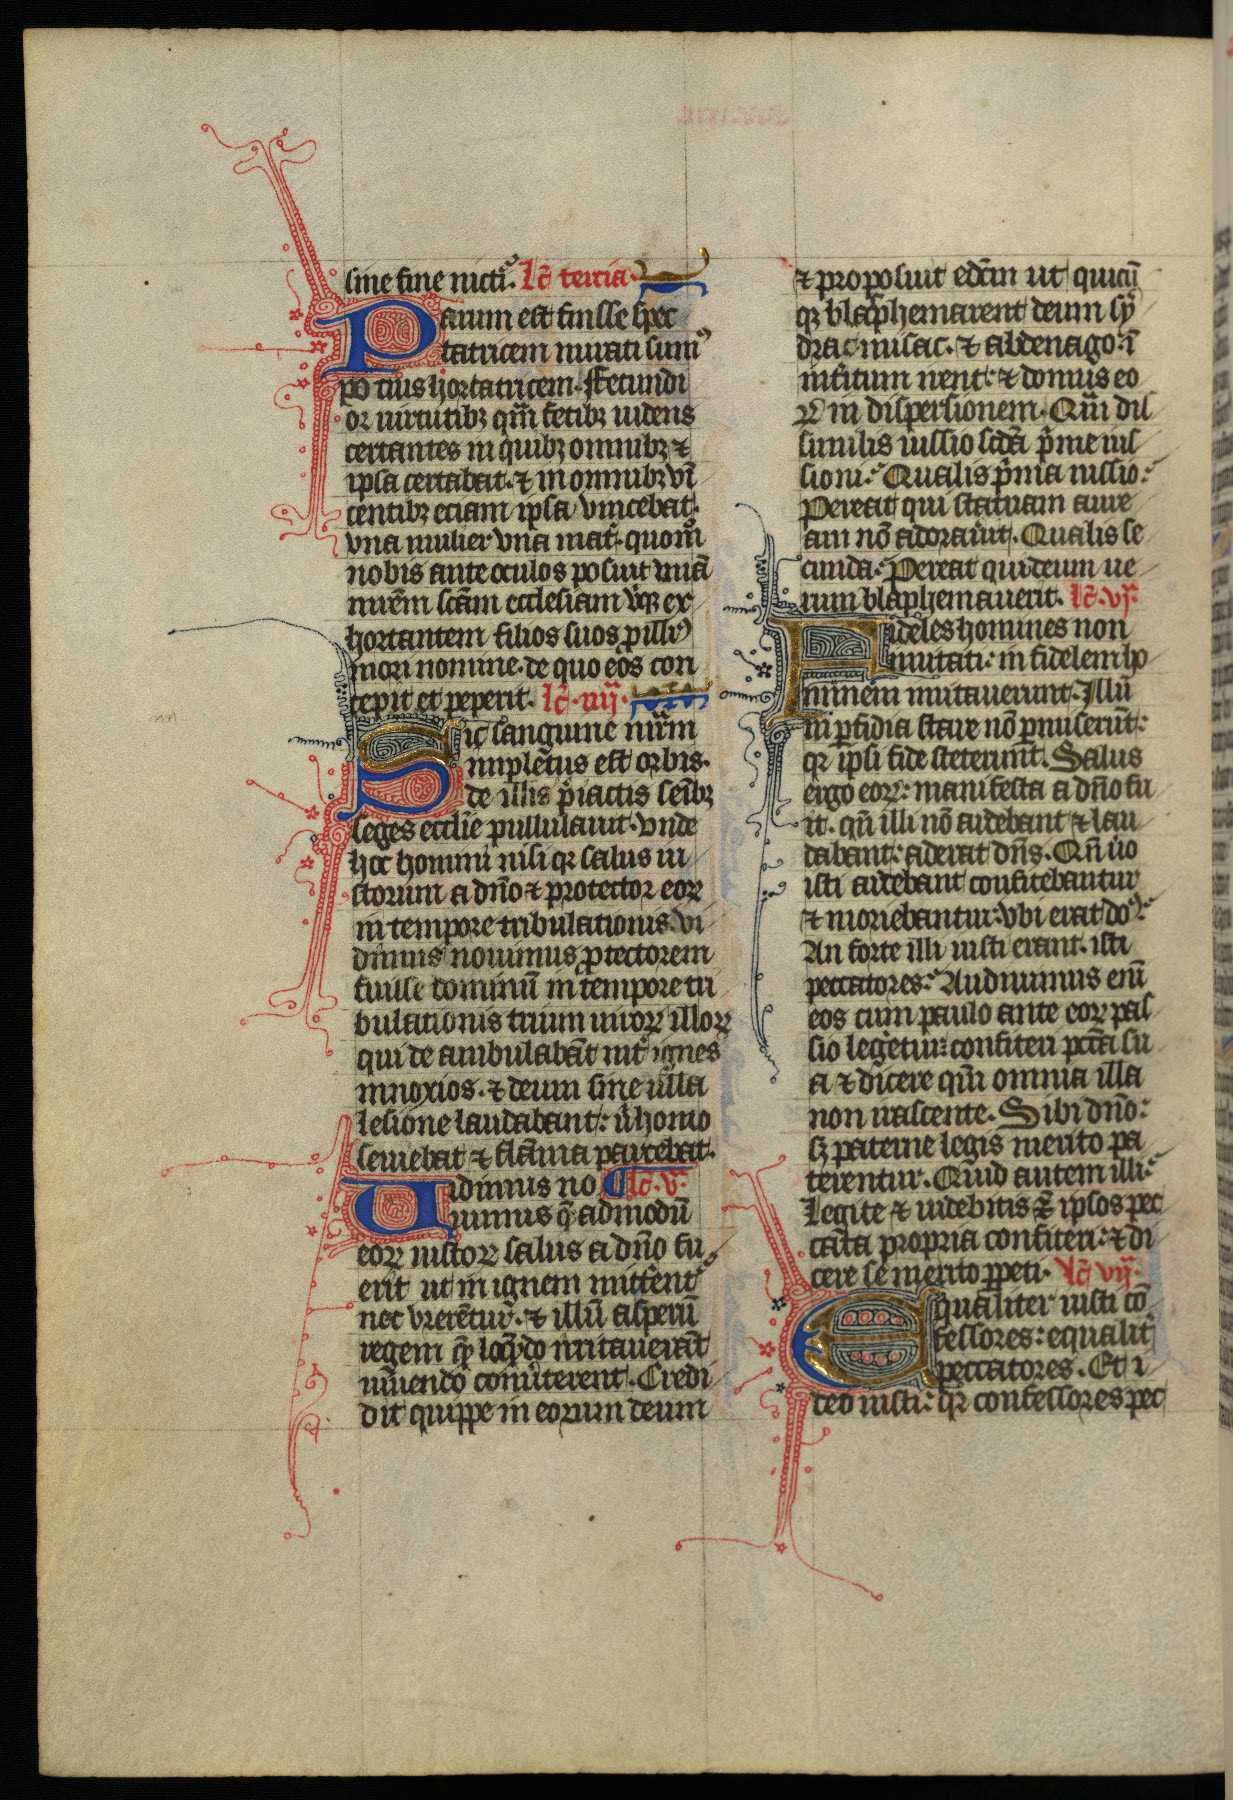 sine fine uicti᷒. Lc̄ tercia.
Parum est fuisse spec
tatricem mirati sum᷒
potius hortatricem. Fecundi
or uirtutibꝫ qm̄ fetibꝫ uidens
certantes in quibꝫ omnibꝫ ⁊
ipsa certabat. ⁊ in omnibꝫ vī
centibꝫ eciam ipsa vincebat.
vna mulier vna mat̄. quom̊
nobis ante oculos posuit vnā
mr̄em scām ecclesiam ubꝗꝫ ex
hortantem filios suos ꝑ illi᷒
mori nomine. de quo eos con
cepit et peperit. lc̄. iiij.
Sic sanguine mr̄m
impletus est orbis.
de illis p̄iactis seībꝫ
seges eccl̄ie pullulauit. vnde
hoc homini nisi qꝛ salus iu
storum a dn̄o ⁊ protector eoꝝ
in tempore tribulationis. Vi
dimus nouimus ꝓtectorem
fuisse dominū in tempore tri
bulationis trium uiroꝝ illoꝝ
qui de ambulabāt int̄ ignes
innoxios. ⁊ deum sine ulla
lesione laudabant: ū homo
seuiebat ⁊ flāma parcebat.
Uidimus no lc̄. v.
uimus q̄ admodū
eoꝝ iustoꝝ salus a dn̄o fu
erit ut in ignem mitterent᷑
nec vrerētur. ⁊ illū asperū
regem quē loquēdo irritauerāt
uiuendo conuterent. Credi
dit quippe in eorum deum
⁊ proposuit edc̄m ut quicū
qꝫ blasphemarent deum sy
drac misac. ⁊ abdenago. ī
int̄itum irent: ⁊ domus eo
ꝝ in dispersionem. Qm̄ dis
similis iussio scd̄a p̄me ius
sioni. Qualis p̄ma iussio.
Pereat qui statuam aure
am nō adorau̅it. Qualis se
cunda. Pereat qui deum ue
rum blasphemauerit. lc̄. vj.
Fideles homines non
mutati: infidelem ho
minem mutauerunt. Illū
in ꝑfidia stare nō ꝑmiserūt:
qꝛ ipsi fide steterunt. Salus
ergo eoꝝ: manifesta a dn̄o fu
it. qn̄ illi nō ardebant ⁊ lau
dabant: aderat dn̄s. Qn̄ u̅o
isti ardebant confitebantur
⁊ moriebantur: vbi erat do᷒.
An forte illi iusti erant. isti
peccatores. Audiuimus enī
eos cum paulo ante eoꝝ pas
sio legetur: confiteri pccā su
a ⁊ dicere qm̄ omnia illa
non irascente. Sibi dn̄o:
sꝫ paterne legis merito pa
terentur. Quid autem illi.
Legite ⁊ uidebitis ⁊ ipsos pec
cata propria confiteri: ⁊ di
cere se merito ꝑpeti. lc̄ vij.
Equaliter iusti cō
fessores: equalit̄
peccatores. Et i
deo iusti: qꝛ confessores pec